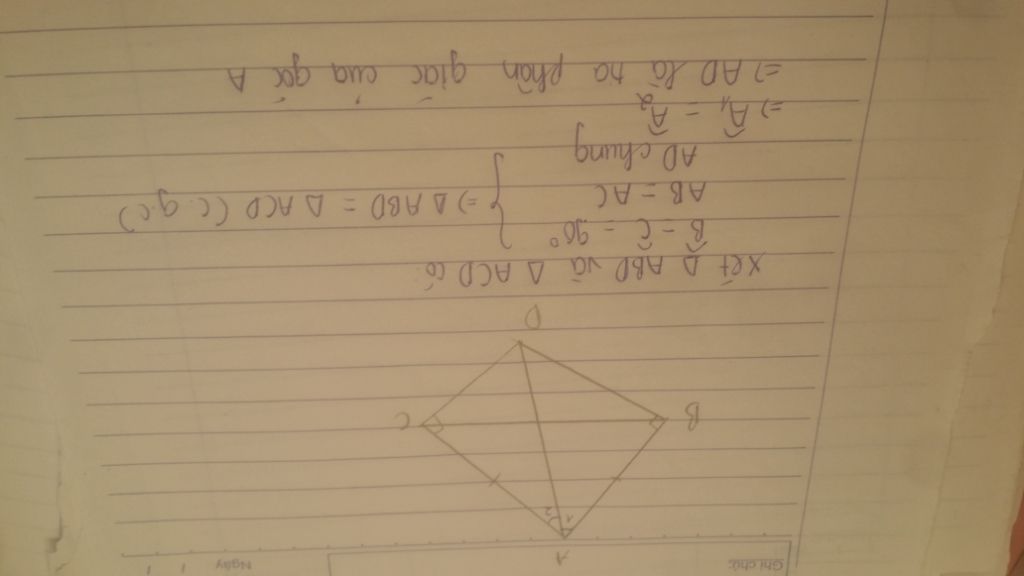 Ghi chú:
Ngày
A
1 2
B
C
D
Xét Δ ABD và Δ ACD có:
B̂ = Ĉ = 90°
AB = AC
AD chung
} => Δ ABD = Δ ACD (c.g.c)
=> Â₁ = Â₂
=> AD là tia phân giác của góc A